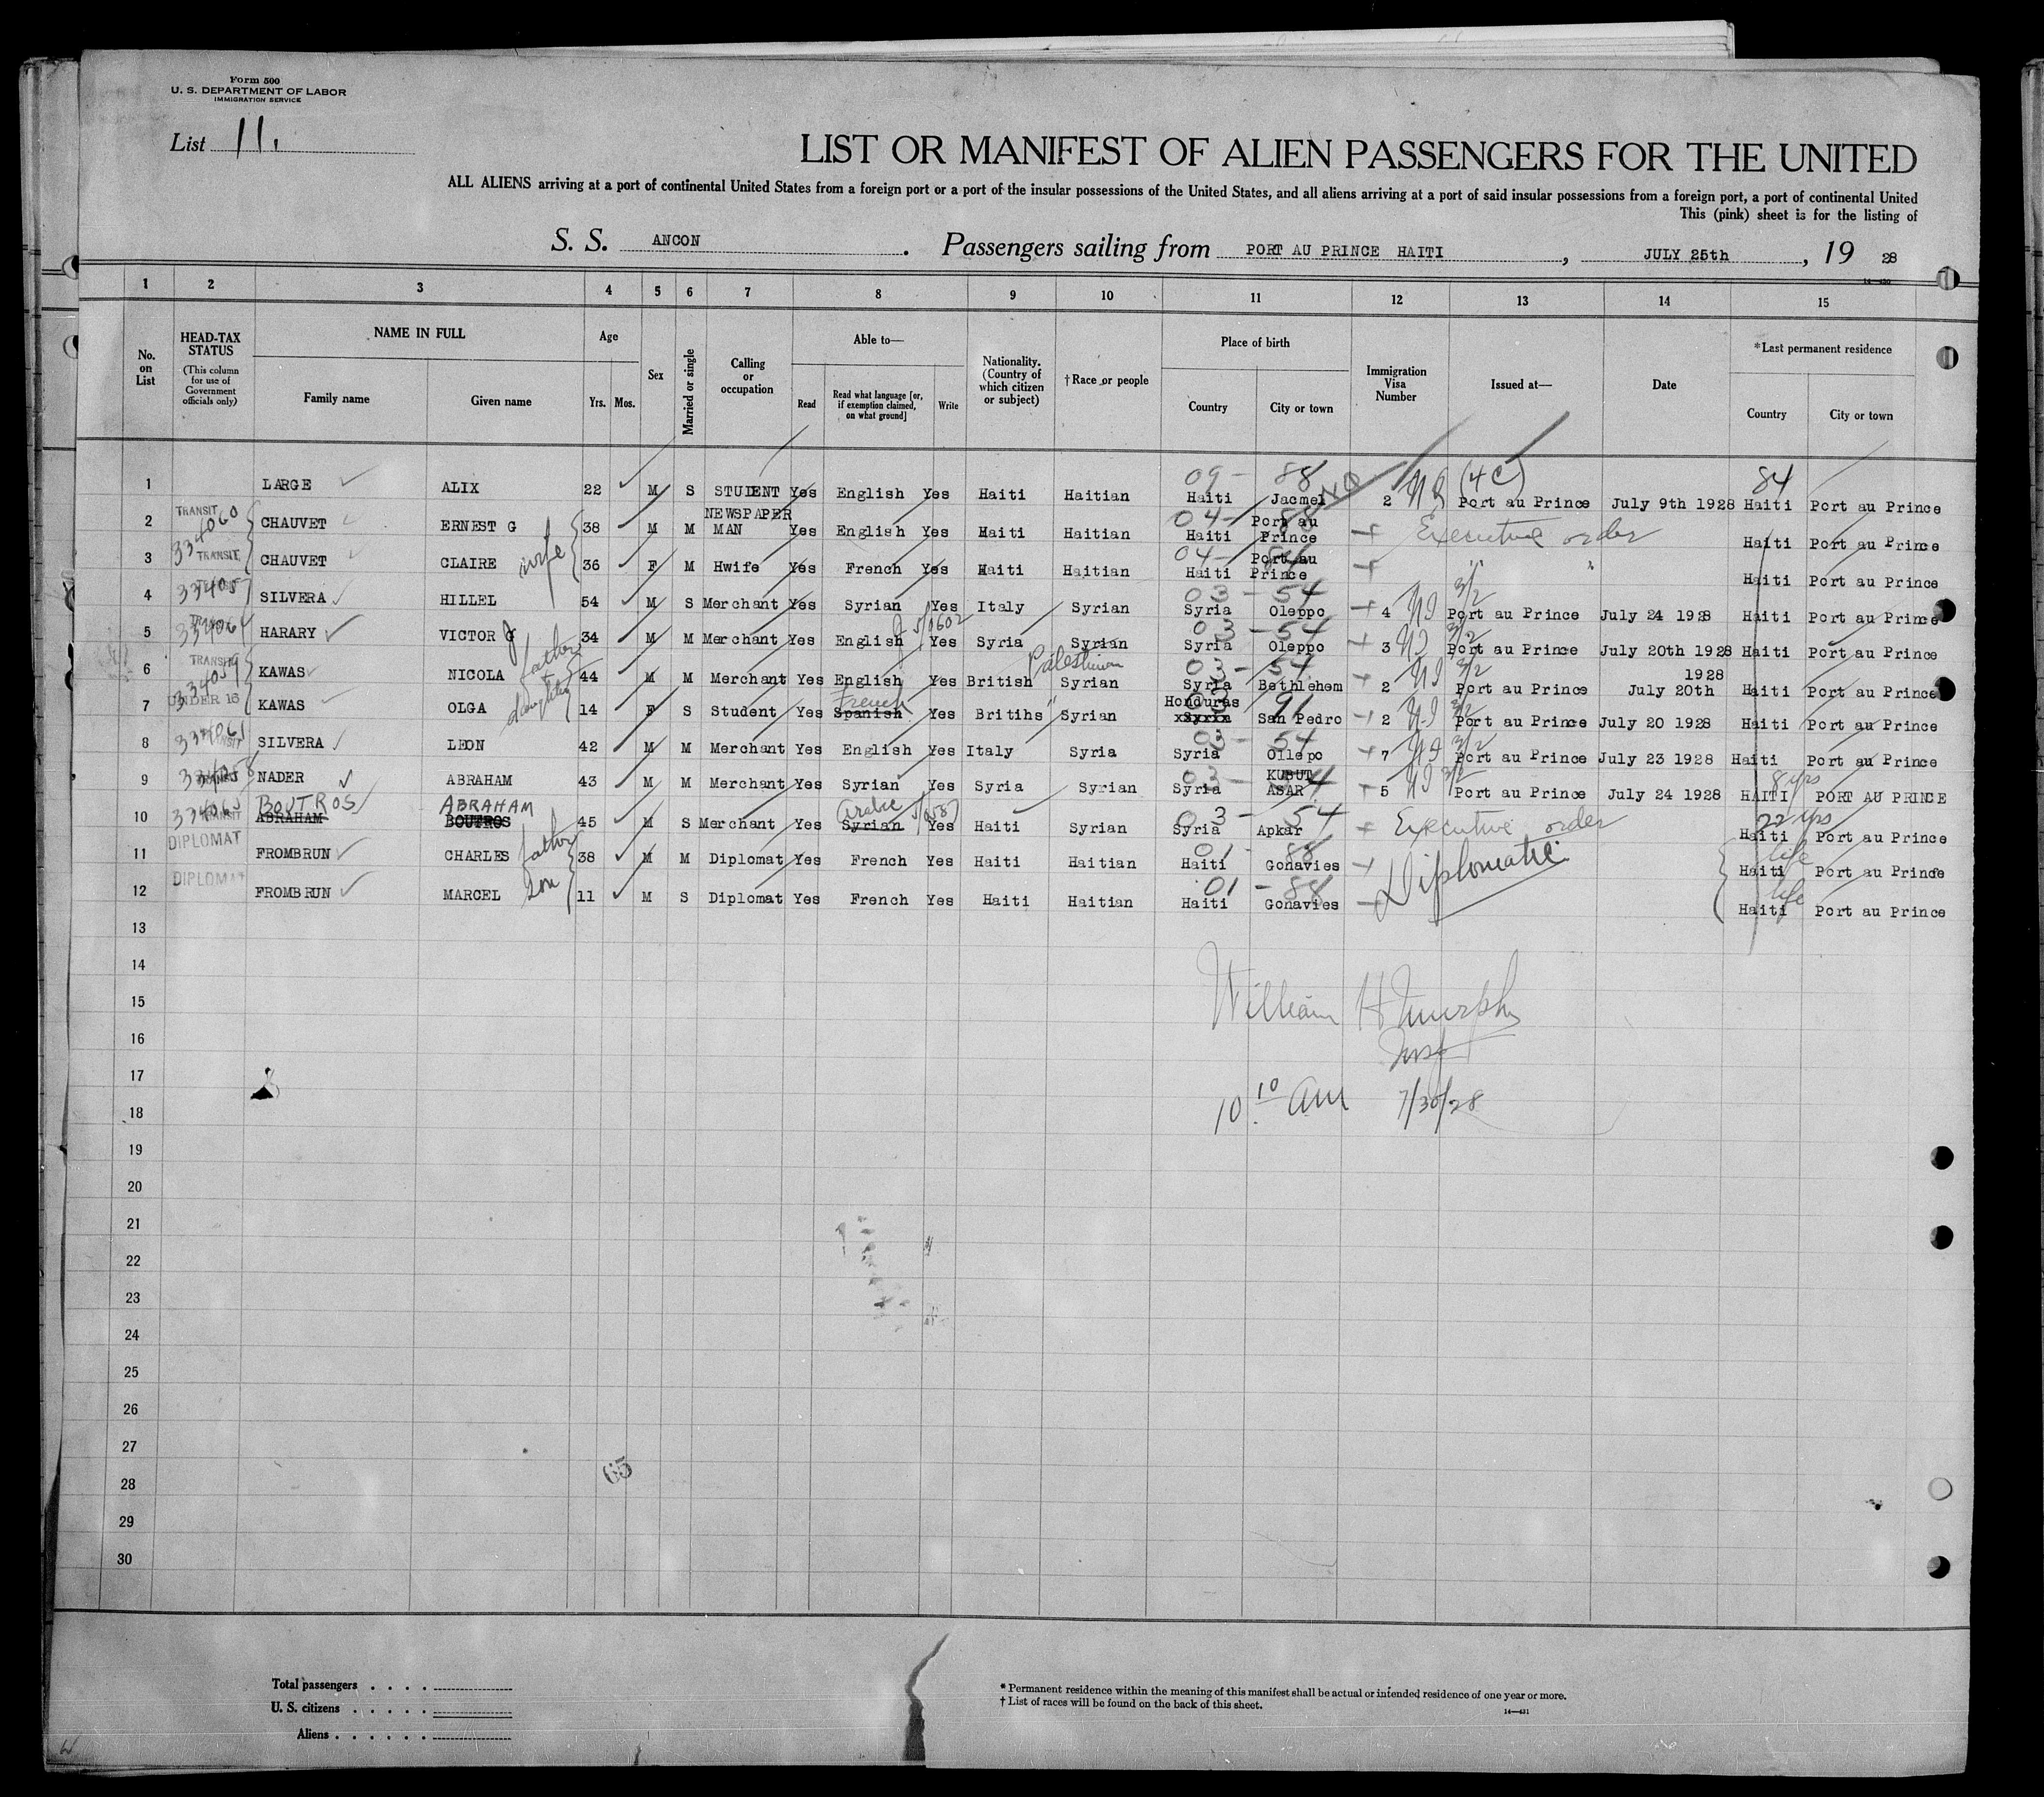 Form 500
U. S. DEPARTMENT OF LABOR
IMMIGRATION SERVICE
List 11.
LIST OR MANIFEST OF ALIEN PASSENGERS FOR THE UNITED
ALL ALIENS arriving at a port of continental United States from a foreign port or a port of the insular possessions of the United States, and all aliens arriving at a port of said insular possessions from a foreign port, a port of continental United
This (pink) sheet is for the listing of
S. S. ANCON . Passengers sailing from PORT AU PRINCE HAITI , JULY 25th , 19 28
1 2 3 4 5 6 7 8 9 10 11 12 13 14 15
No. on List
HEAD-TAX STATUS
(This column for use of Government officials only)
NAME IN FULL
Family name Given name
Age
Yrs. Mos.
Sex
Married or single
Calling or occupation
Able to—
Read
Read what language [or, if exemption claimed, on what ground]
Write
Nationality. (Country of which citizen or subject)
†Race or people
Place of birth
Country City or town
Immigration Visa Number
Issued at—
Date
*Last permanent residence
Country City or town
09- 88 (4C) 84
1 LARGE ALIX 22 M S STUDENT Yes English Yes Haiti Haitian Haiti Jacmel NQ 2 Port au Prince July 9th 1928 Haiti Port au Prince
2 TRANSIT 334060 CHAUVET ERNEST G 38 M M NEWSPAPER MAN Yes English Yes Haiti Haitian 04- 88 Haiti Port au Prince Executive order Haiti Port au Prince
3 TRANSIT CHAUVET CLAIRE wife 36 F M Hwife Yes French Yes Haiti Haitian 04- 84 Haiti Port au Prince " " Haiti Port au Prince
4 334057 SILVERA HILLEL 54 M S Merchant Yes Syrian Yes Italy Syrian 03-54 Syria Oleppo 4 3/2 Port au Prince July 24 1928 Haiti Port au Prince
5 TRANSIT 334064 HARARY VICTOR J 34 M M Merchant Yes English Yes Syria Syrian 03-54 Syria Oleppo 3 3/2 Port au Prince July 20th 1928 Haiti Port au Prince
6 TRANSIT 334059 KAWAS NICOLA father + daughter 44 M M Merchant Yes English Yes British Palestinian Syrian 03-54 Syria Bethlehem 2 3/2 Port au Prince July 20th 1928 Haiti Port au Prince
7 UNDER 16 KAWAS OLGA 14 F S Student Yes French Spanish Yes Britihs " Syrian Honduras Syria 91 San Pedro 2 3/2 Port au Prince July 20 1928 Haiti Port au Prince
8 334061 SILVERA LEON 42 M M Merchant Yes English Yes Italy Syria 03-54 Syria Ollepo 7 3/2 Port au Prince July 23 1928 Haiti Port au Prince
9 NADER ABRAHAM 43 M M Merchant Yes Syrian Yes Syria Syrian 03- Syria KUBUT ASAR 5 3/2 Port au Prince July 24 1928 8 yrs HAITI PORT AU PRINCE
10 TRANSIT BOUTROS ABRAHAM ABRAHAM BOUTROS 45 M S Merchant Yes Arabic Syrian Yes Haiti Syrian 03-54 Syria Apkar Executive order 22 yrs Haiti Port au Prince
11 DIPLOMAT FROMBRUN CHARLES father 38 M M Diplomat Yes French Yes Haiti Haitian 01-88 Haiti Gonavies Diplomatic life Haiti Port au Prince
12 DIPLOMAT FROMBRUN MARCEL son 11 M S Diplomat Yes French Yes Haiti Haitian 01-88 Haiti Gonavies life Haiti Port au Prince
13
14
15 William H Murphy
16 Insp
17
18 10 10 AM 7/30/28
19
20
21
22
23
24
25
26
27
28 65
29
30
Total passengers . . . .
U. S. citizens . . . . .
Aliens . . . . . .
* Permanent residence within the meaning of this manifest shall be actual or intended residence of one year or more.
† List of races will be found on the back of this sheet.
14—431